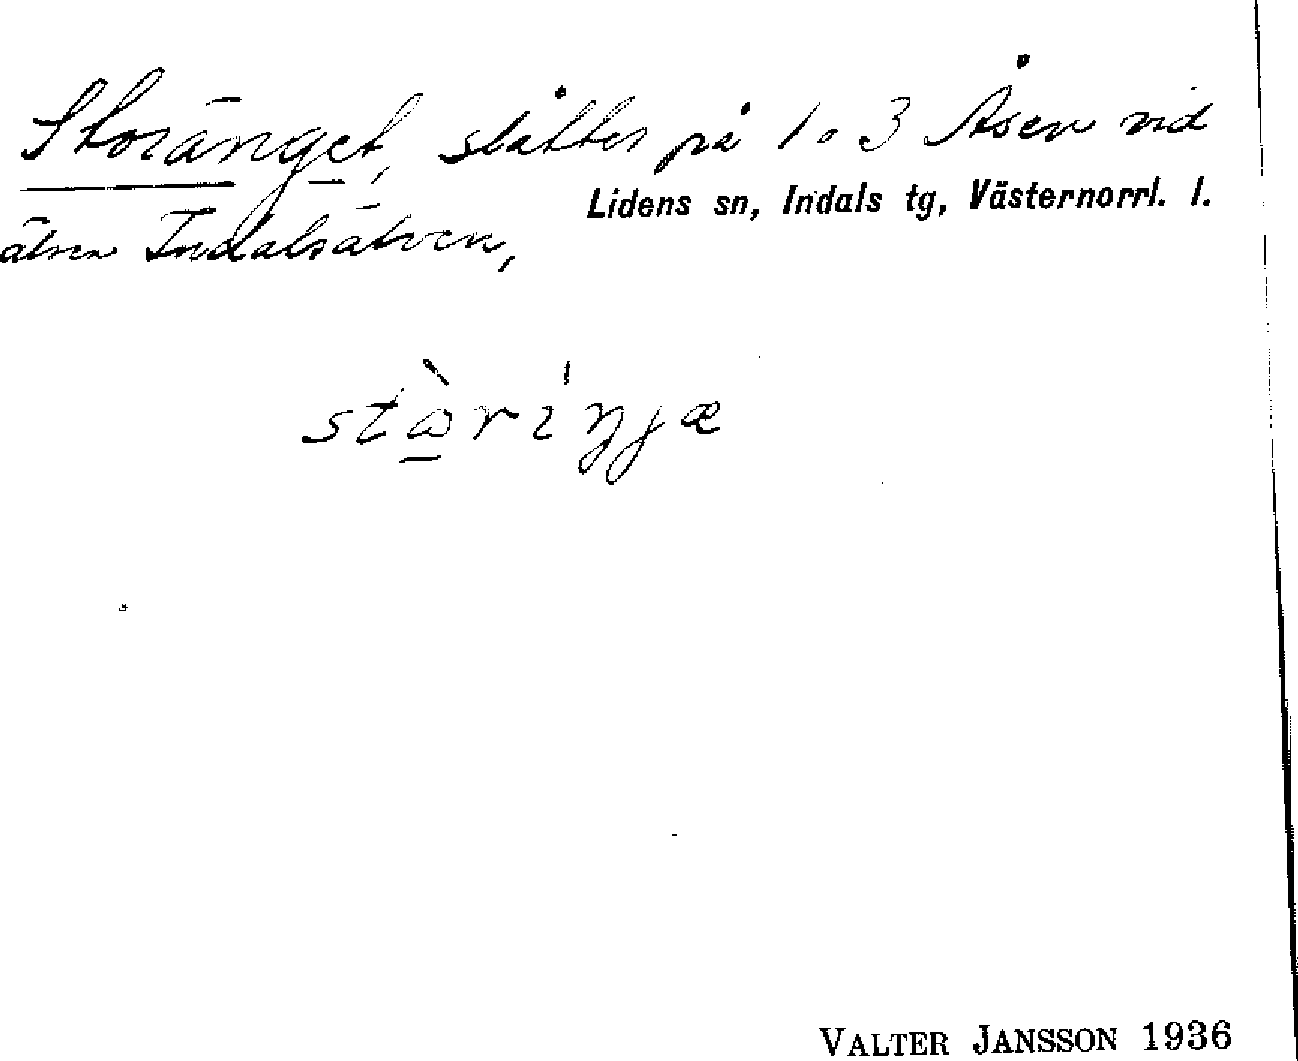 Storänget, slåtter på 1 o 3 Åsen vid
Lidens sn, Indals tg, Västernorrl. l.
älven Indalsälven,
stɷ̀riˈŋjæ
VALTER JANSSON 1936